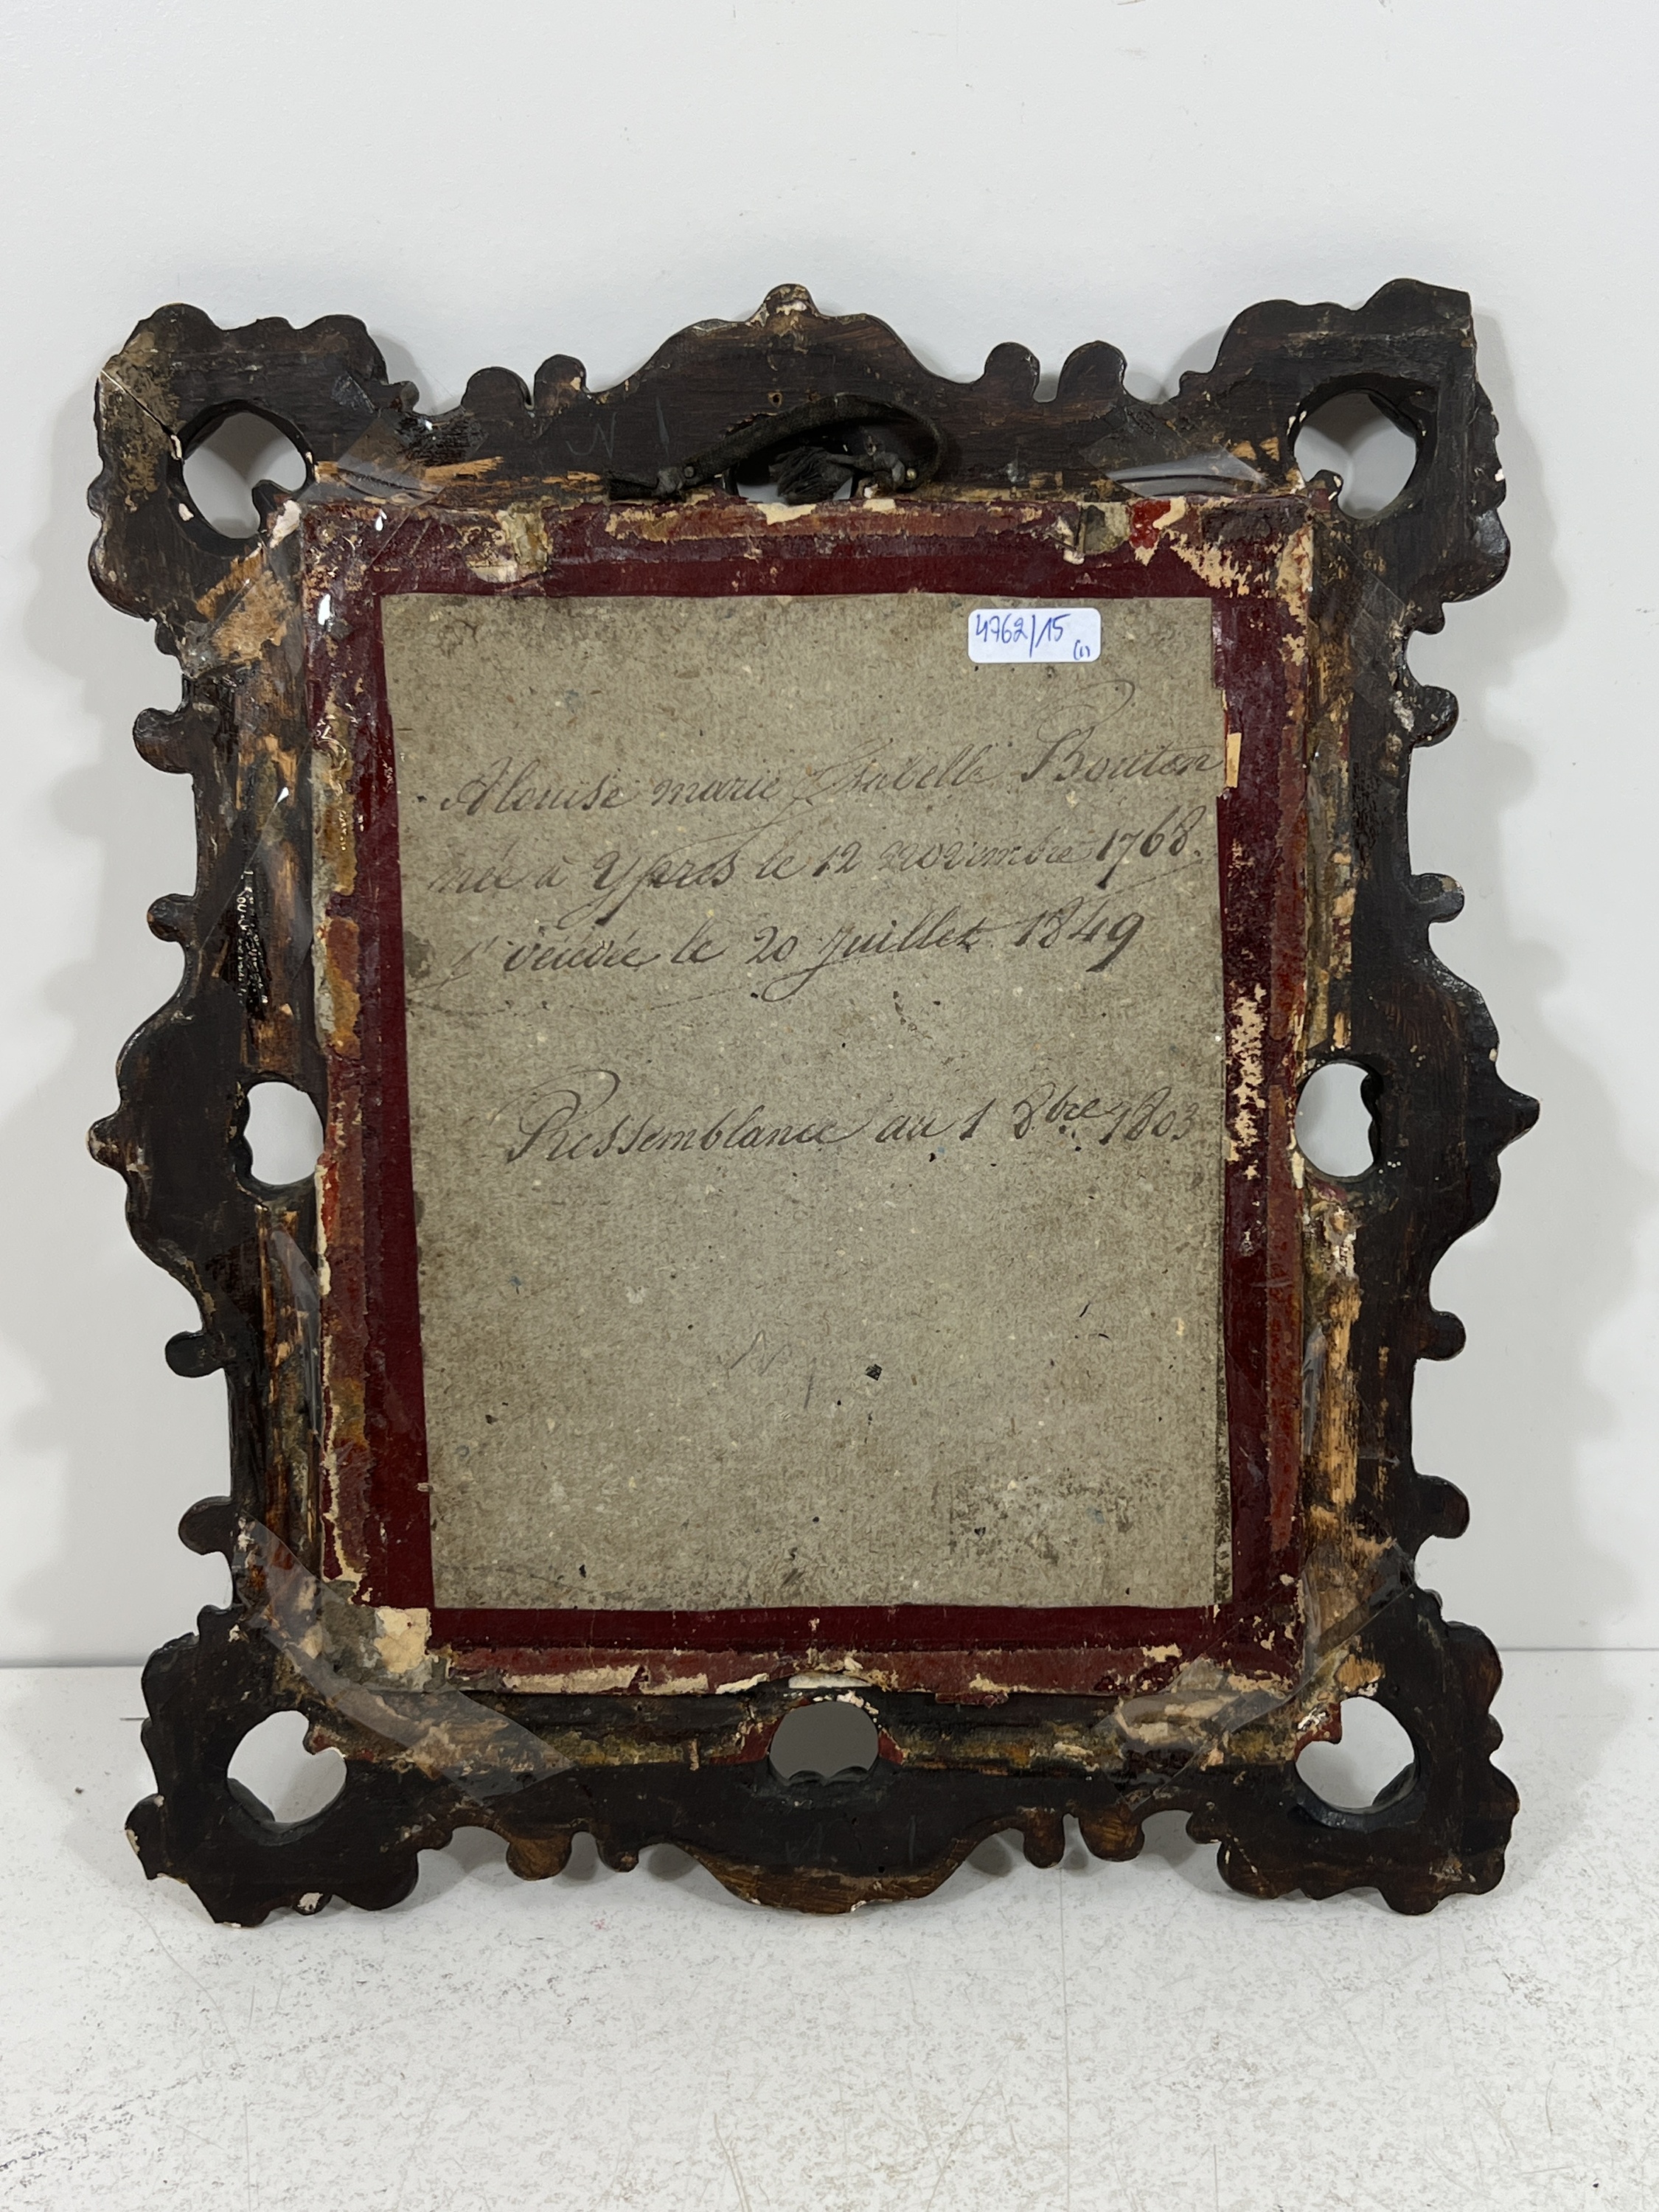 4762/15
(1)
Alouise marie Isabelle Bouton
née à Ypres le 12 novembre 1768.
le 20 Juillet 1849
Ressemblance au 1 8bre 1803